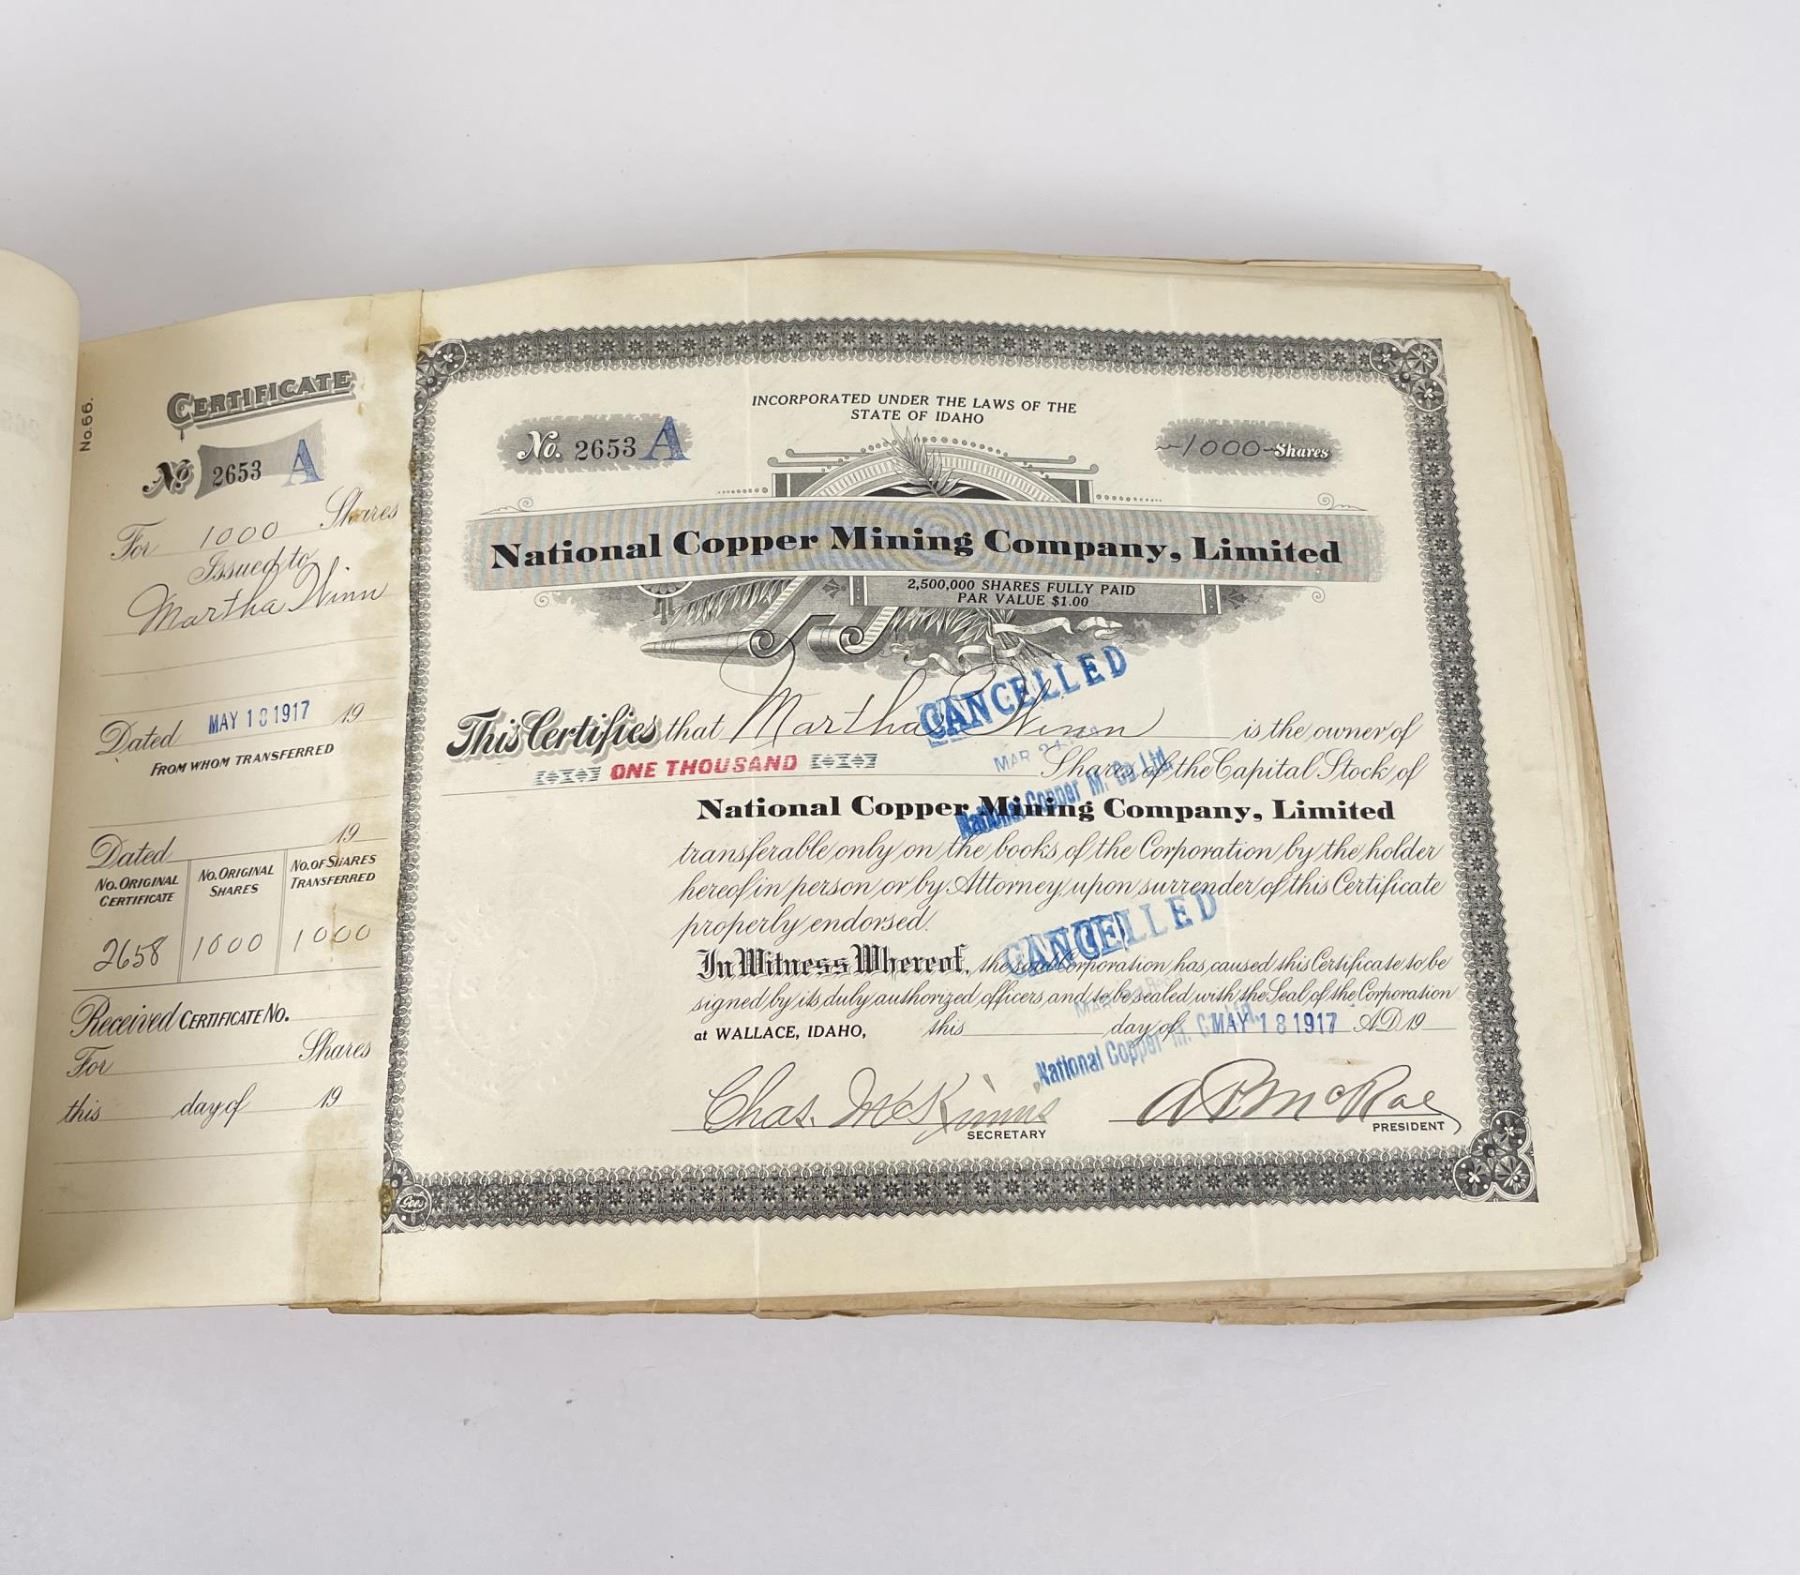 No. 66.
CERTIFICATE
No 2653 A
For 1000 Shares
Issued to
Martha Winn
Dated MAY 18 1917 19
FROM WHOM TRANSFERRED
Dated 19
No. ORIGINAL CERTIFICATE
No. ORIGINAL SHARES
No. OF SHARES TRANSFERRED
2658 1000 1000
Received CERTIFICATE No.
For Shares
this day of 19
INCORPORATED UNDER THE LAWS OF THE
STATE OF IDAHO
No. 2653 A
1000 Shares
National Copper Mining Company, Limited
2,500,000 SHARES FULLY PAID
PAR VALUE $1.00
This Certifies that Martha Winn is the owner of
ONE THOUSAND Shares of the Capital Stock of
National Copper Mining Company, Limited
transferable only on the books of the Corporation by the holder
hereof in person or by Attorney upon surrender of this Certificate
properly endorsed.
In Witness Whereof, the said Corporation has caused this Certificate to be
signed by its duly authorized officers and to be sealed with the Seal of the Corporation
at WALLACE, IDAHO, this day of MAY 18 1917 A.D. 19
CANCELLED
MAR
National Copper M. Co. Ltd.
CANCELLED
National Copper M. Co.
Chas. McKinnis
SECRETARY
A P McRae
PRESIDENT